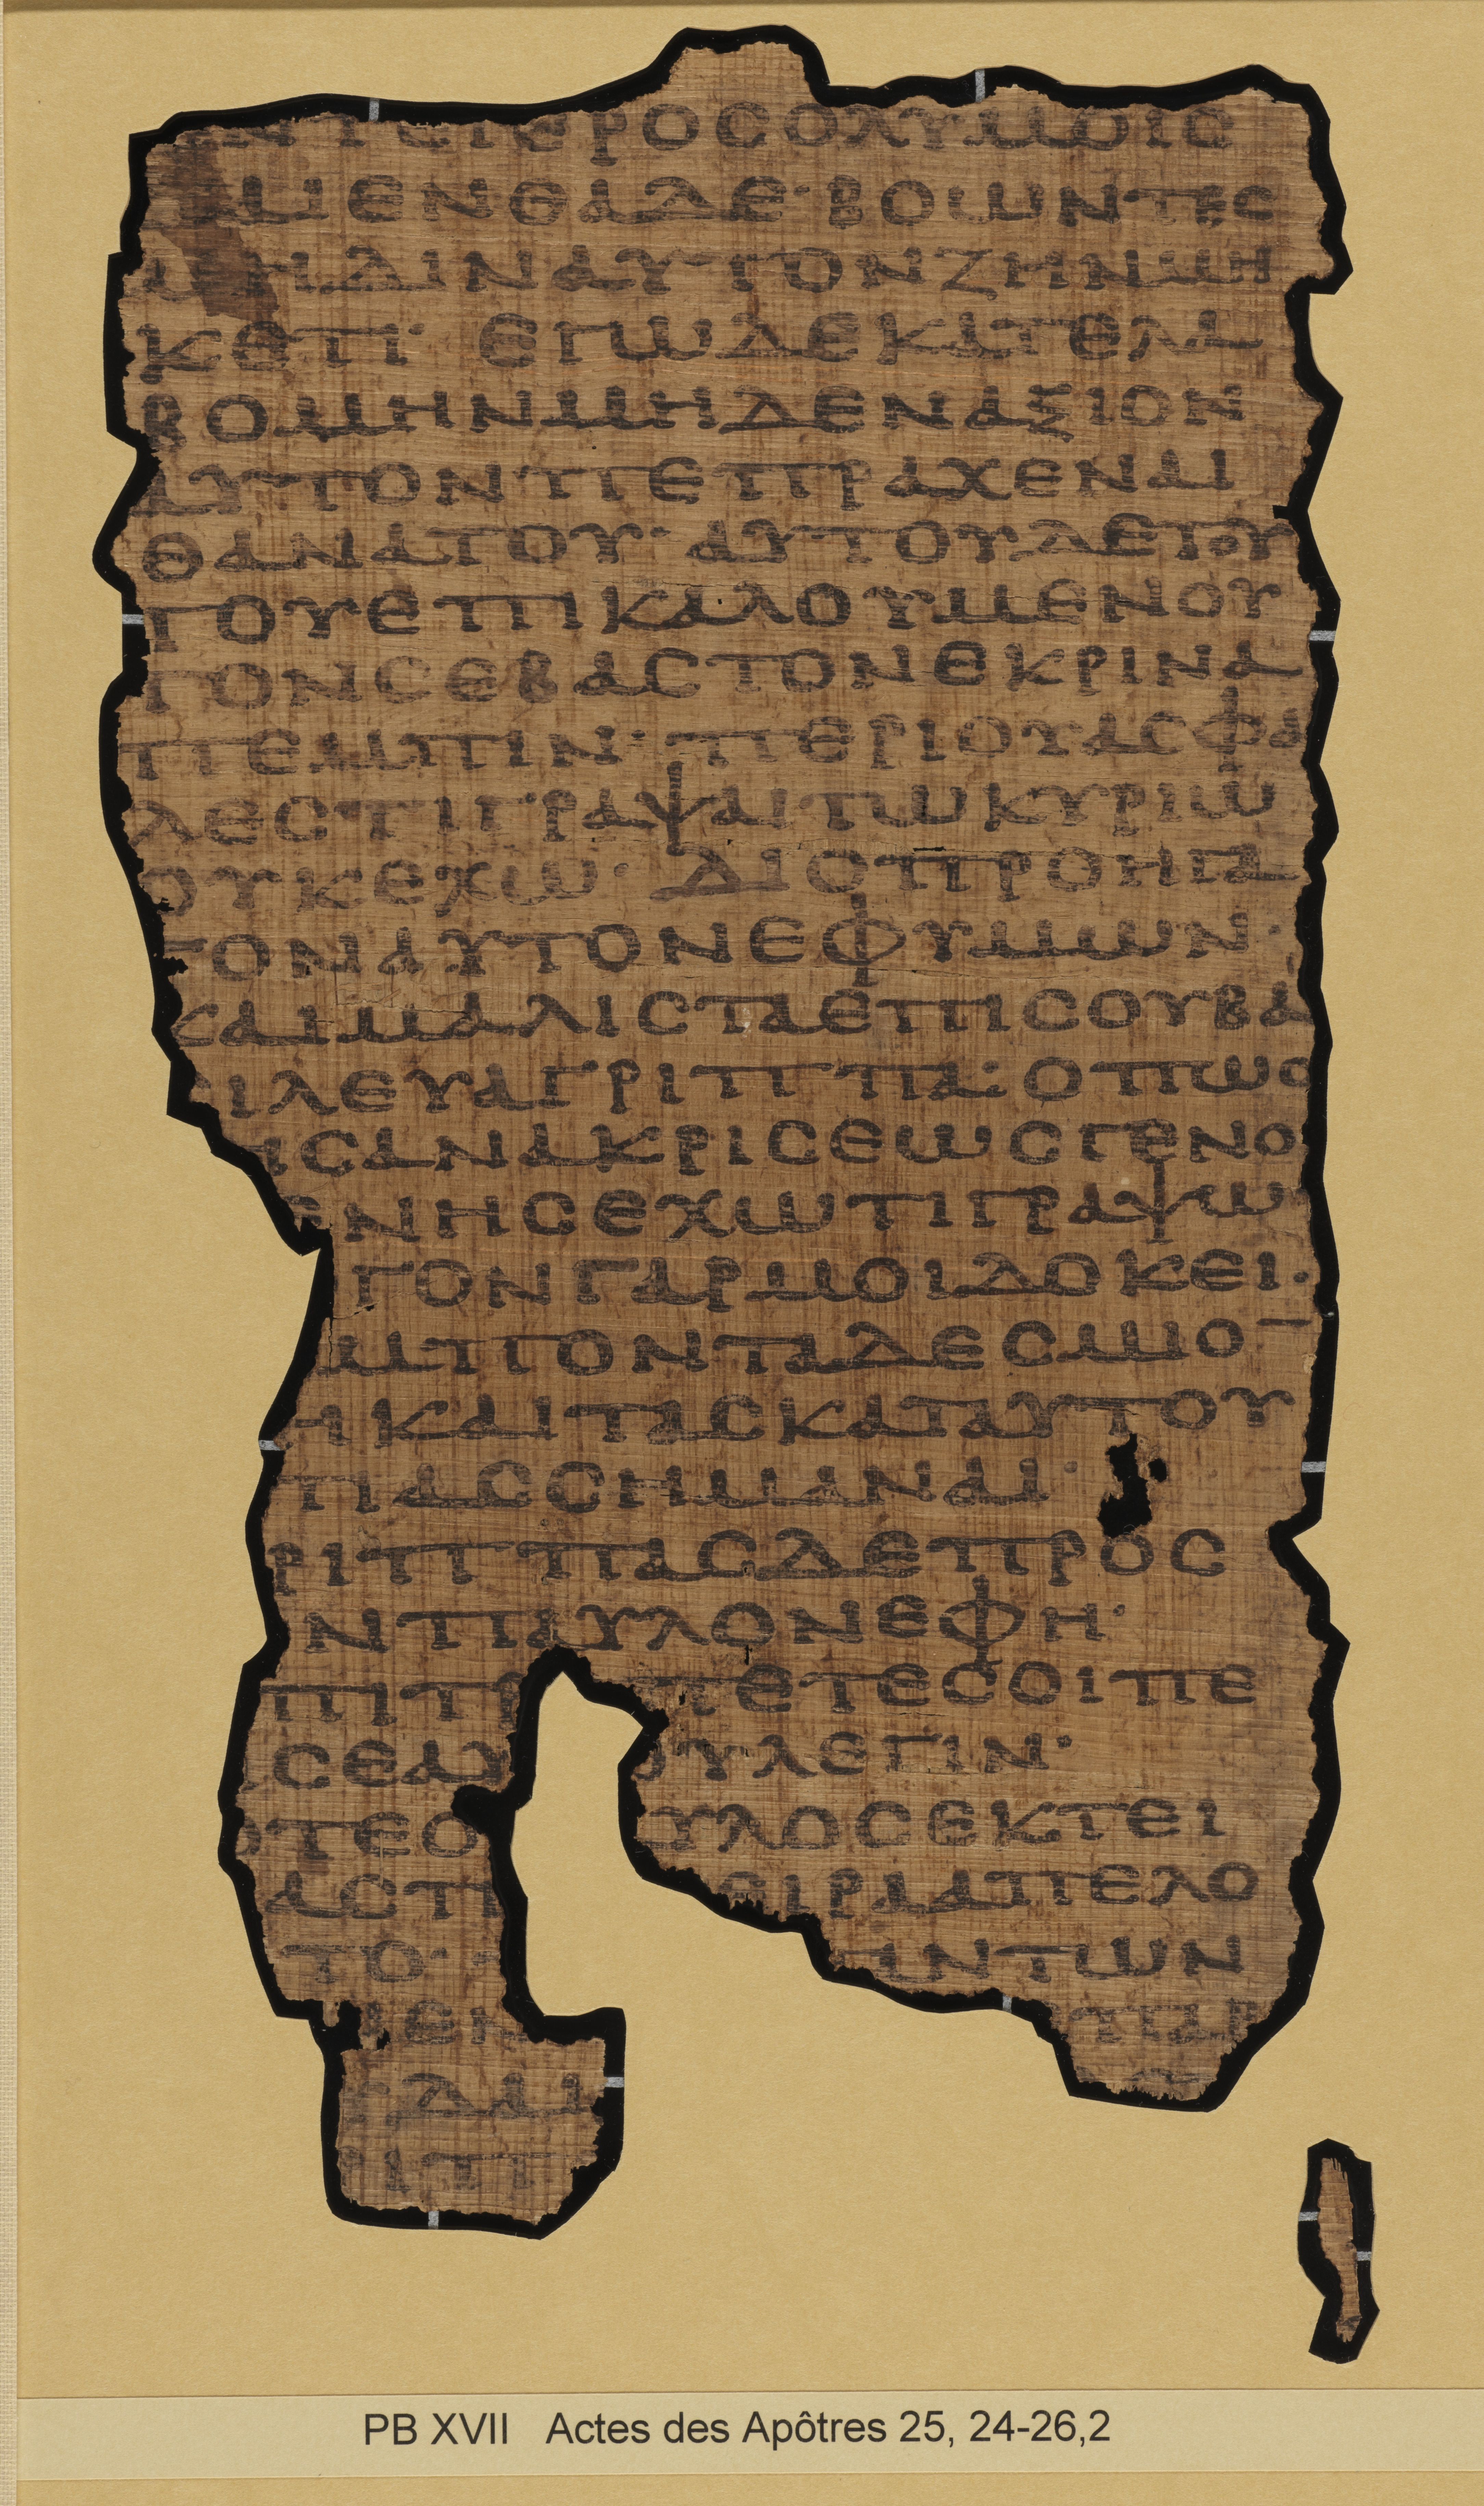 ΝΤΕΙΕΡΟϹΟΛΥΜΟΙϹ
ΑΙΕΝΘΑΔΕ· ΒΟΩΝΤΕϹ
ΜΗΔΙΝΑΥΤΟΝΖΗΝΜΗ
ΚΕΤΙ· ΕΓΩΔΕΚΑΤΕΛΑ
ΒΟΜΗΝΜΗΔΕΝΑΞΙΟΝ
ΑΥΤΟΝΠΕΠΡΑΧΕΝΑΙ
ΘΑΝΑΤΟΥ· ΑΥΤΟΥΔΕΤΟΥ
ΤΟΥΕΠΙΚΑΛΟΥΜΕΝΟΥ
ΤΟΝϹΕΒΑϹΤΟΝΕΚΡΙΝΑ
ΠΕΜΠΙΝ· ΠΕΡΙΟΥΑϹΦΑ
ΛΕϹΤΙΓΡΑΨΑΙΤΩΚΥΡΙΩ
ΟΥΚΕΧΩ· ΔΙΟΠΡΟΗΓΑ
ΓΟΝΑΥΤΟΝΕΦΥΜΩΝ·
ΚΑΙΜΑΛΙϹΤΑΕΠΙϹΟΥΒΑ
ϹΙΛΕΥΑΓΡΙΠΠΑ· ΟΠΩϹ
ΗϹΑΝΑΚΡΙϹΕΩϹΓΕΝΟ
ΕΝΗϹΕΧΩΤΙΓΡΑΨΩ
ΓΟΝΓΑΡΜΟΙΔΟΚΕΙ·
ΜΠΟΝΤΑΔΕϹΜΙΟ¯
ΗΚΑΙΤΑϹΚΑΤΑΥΤΟΥ
ΤΙΑϹϹΗΜΑΝΑΙ·
ΡΙΠΠΑϹΔΕΠΡΟϹ
ΝΠΑΥΛΟΝΕΦΗ·
ΠΙΤΡ ΠΕΤΕϹΟΙΠΕ
ϹΕΑΥ ΟΥΛΕΓΙΝ·
ΟΤΕΟ ΥΛΟϹΕΚΤΕΙ
ΑϹΤΗ ΕΙΡΑΑΠΕΛΟ
ΤΟ· ΑΝΤΩΝ
ΕΝ ΠΑΡ
ΔΑΙ
ΙΠ
PB XVII Actes des Apôtres 25, 24-26,2